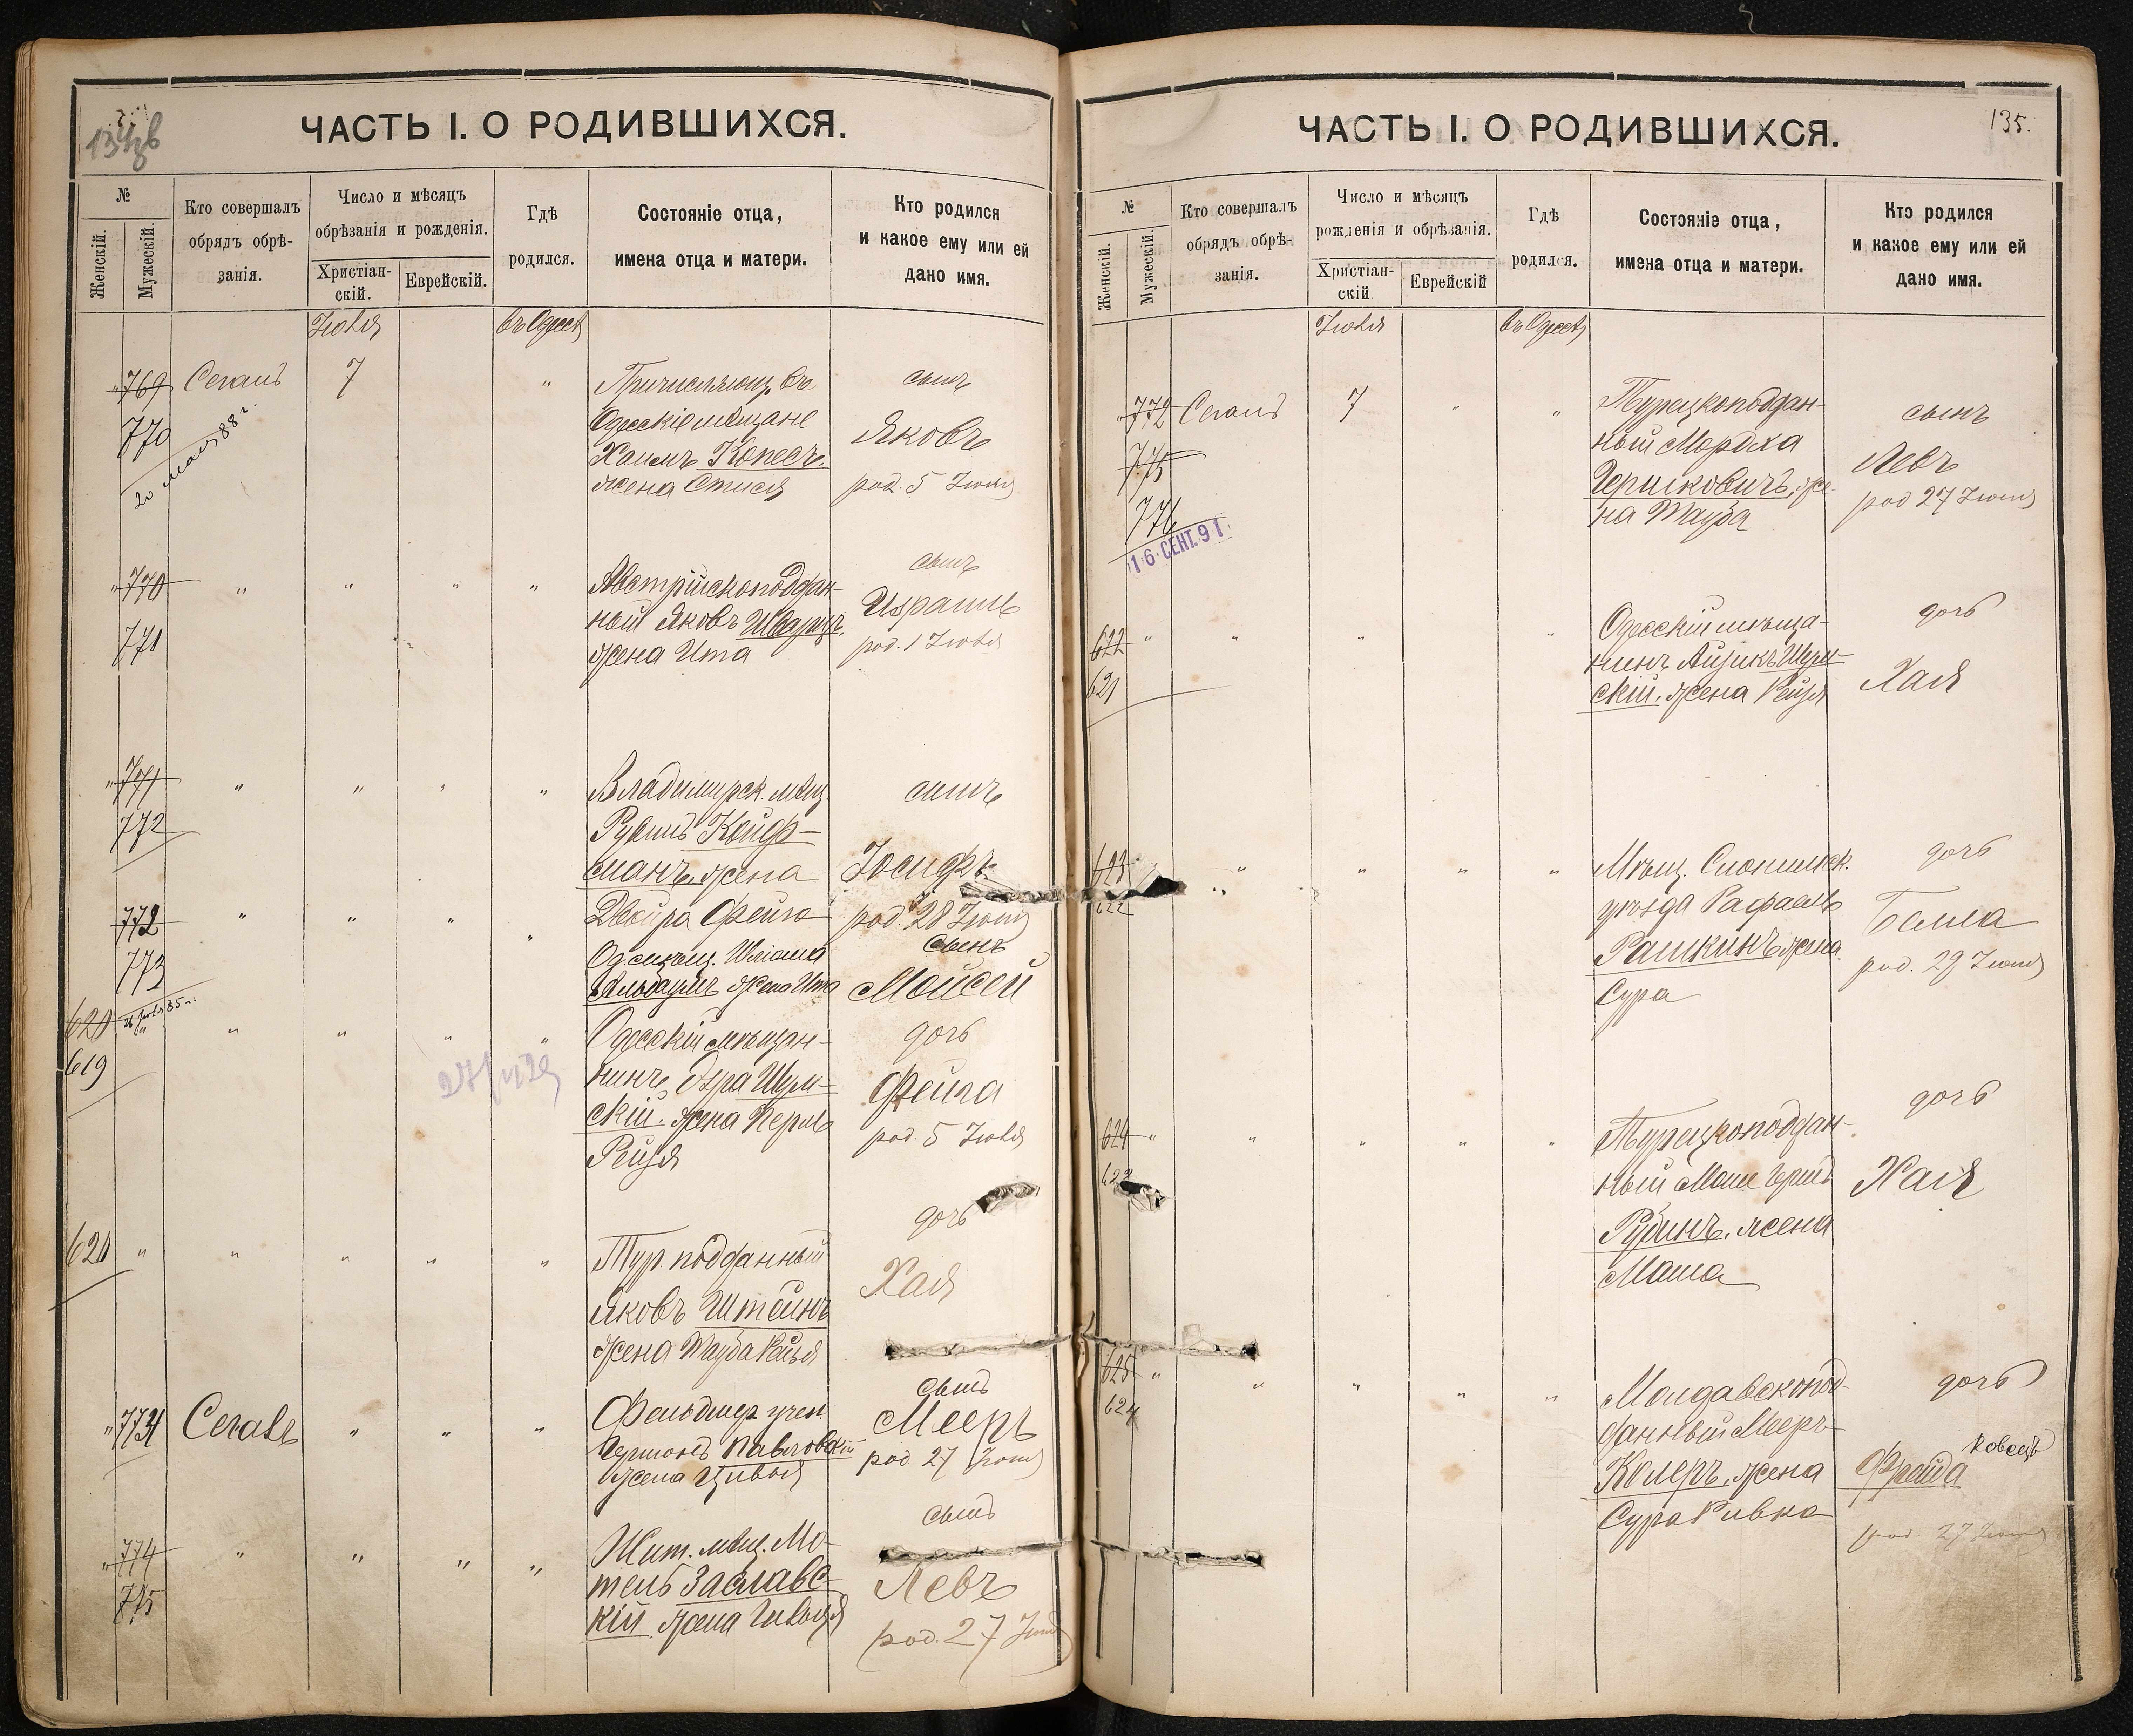 134об
ЧАСТЬ I. О РОДИВШИХСЯ.
№
Женскій.
Мужескій.
Кто совершалъ
обрядъ обрѣ-
занія.
Число и мѣсяцъ
обрѣзанія и рожденія.
Христіан-
скій.
Еврейскій.
Гдѣ
родился.
Состояніе отца,
имена отца и матери.
Кто родился
и какое ему или ей
дано имя.
Іюля
въ Одессѣ
769
770
20 мая 88 г.
Сегалъ
7
"
Причисляющ. въ
Одесскіе мѣщане
Хаимъ Копесъ.
жена Этися
сынъ
Яковъ
род. 5 Іюля
770
771
"
"
"
"
Австрійскоподдан-
ный Яковъ Шварцъ.
жена Ита
сынъ
Израиль
род. 1 Іюля
771
772
"
"
"
"
Владимірск. мѣщ.
Рувинъ Койф-
манъ. жена
Двойра Фейга
сынъ
Іосифъ
род. 28 Іюня
772
773
"
"
"
"
Од. мѣщ. Шлiома
жена Ита
сынъ
Мойсей
620
619
"
"
"
"
"
Одесскій мѣщан-
нинъ Эзра Шум-
скій. жена Перль
Рейзя
дочь
Фейга
род. 5 Іюля
620
"
"
"
"
"
Тур. подданный
Яковъ Штейнъ
жена Тауба Рейзя
дочь
Хая
"
774
Сегалъ
"
"
"
Фельдшер. учен.
Павловскій
жена Цивья
сынъ
Мееръ
род. 27 Іюня
"
774
775
"
"
"
"
Жит. мѣщ. Мо-
тель Заславс-
кій. жена
сынъ
Левъ
род. 27 Іюня
135.
ЧАСТЬ I. О РОДИВШИХСЯ.
№
Женскій.
Мужескій.
Кто совершалъ
обрядъ обрѣ-
занія.
Число и мѣсяцъ
рожденія и обрѣзанія.
Христіан-
скій
Еврейскій
Гдѣ
родился.
Состояніе отца,
имена отца и матери.
Кто родился
и какое ему или ей
дано имя.
Іюля
въ Одессѣ
"
772
775
776
16 СЕНТ. 91
Сегалъ
7
"
"
Турецкоподдан-
ный Мордха
Гершковичъ, же-
на Тауба
сынъ
Левъ
род 27 Іюня
622
621
"
"
"
"
Одесскій мѣща-
нинъ Айзикъ Шум-
скій. жена Рейзя
дочь
Хая
623
622
"
"
"
"
Мѣщ. Слонимск.
уѣзда Рафаилъ
Рашкинъ жена
Сура
дочь
Бейла
род. 29 Іюня
624
623
"
"
"
"
"
Турецкоподдан-
ный Моше Гершъ
Рубинъ. жена
Маша
дочь
Хая
625
624
"
"
"
"
"
Молдавскопод-
данный Мееръ
Колеръ. жена
Сура Ривка
дочь
Фрейда
род. 27 Іюня